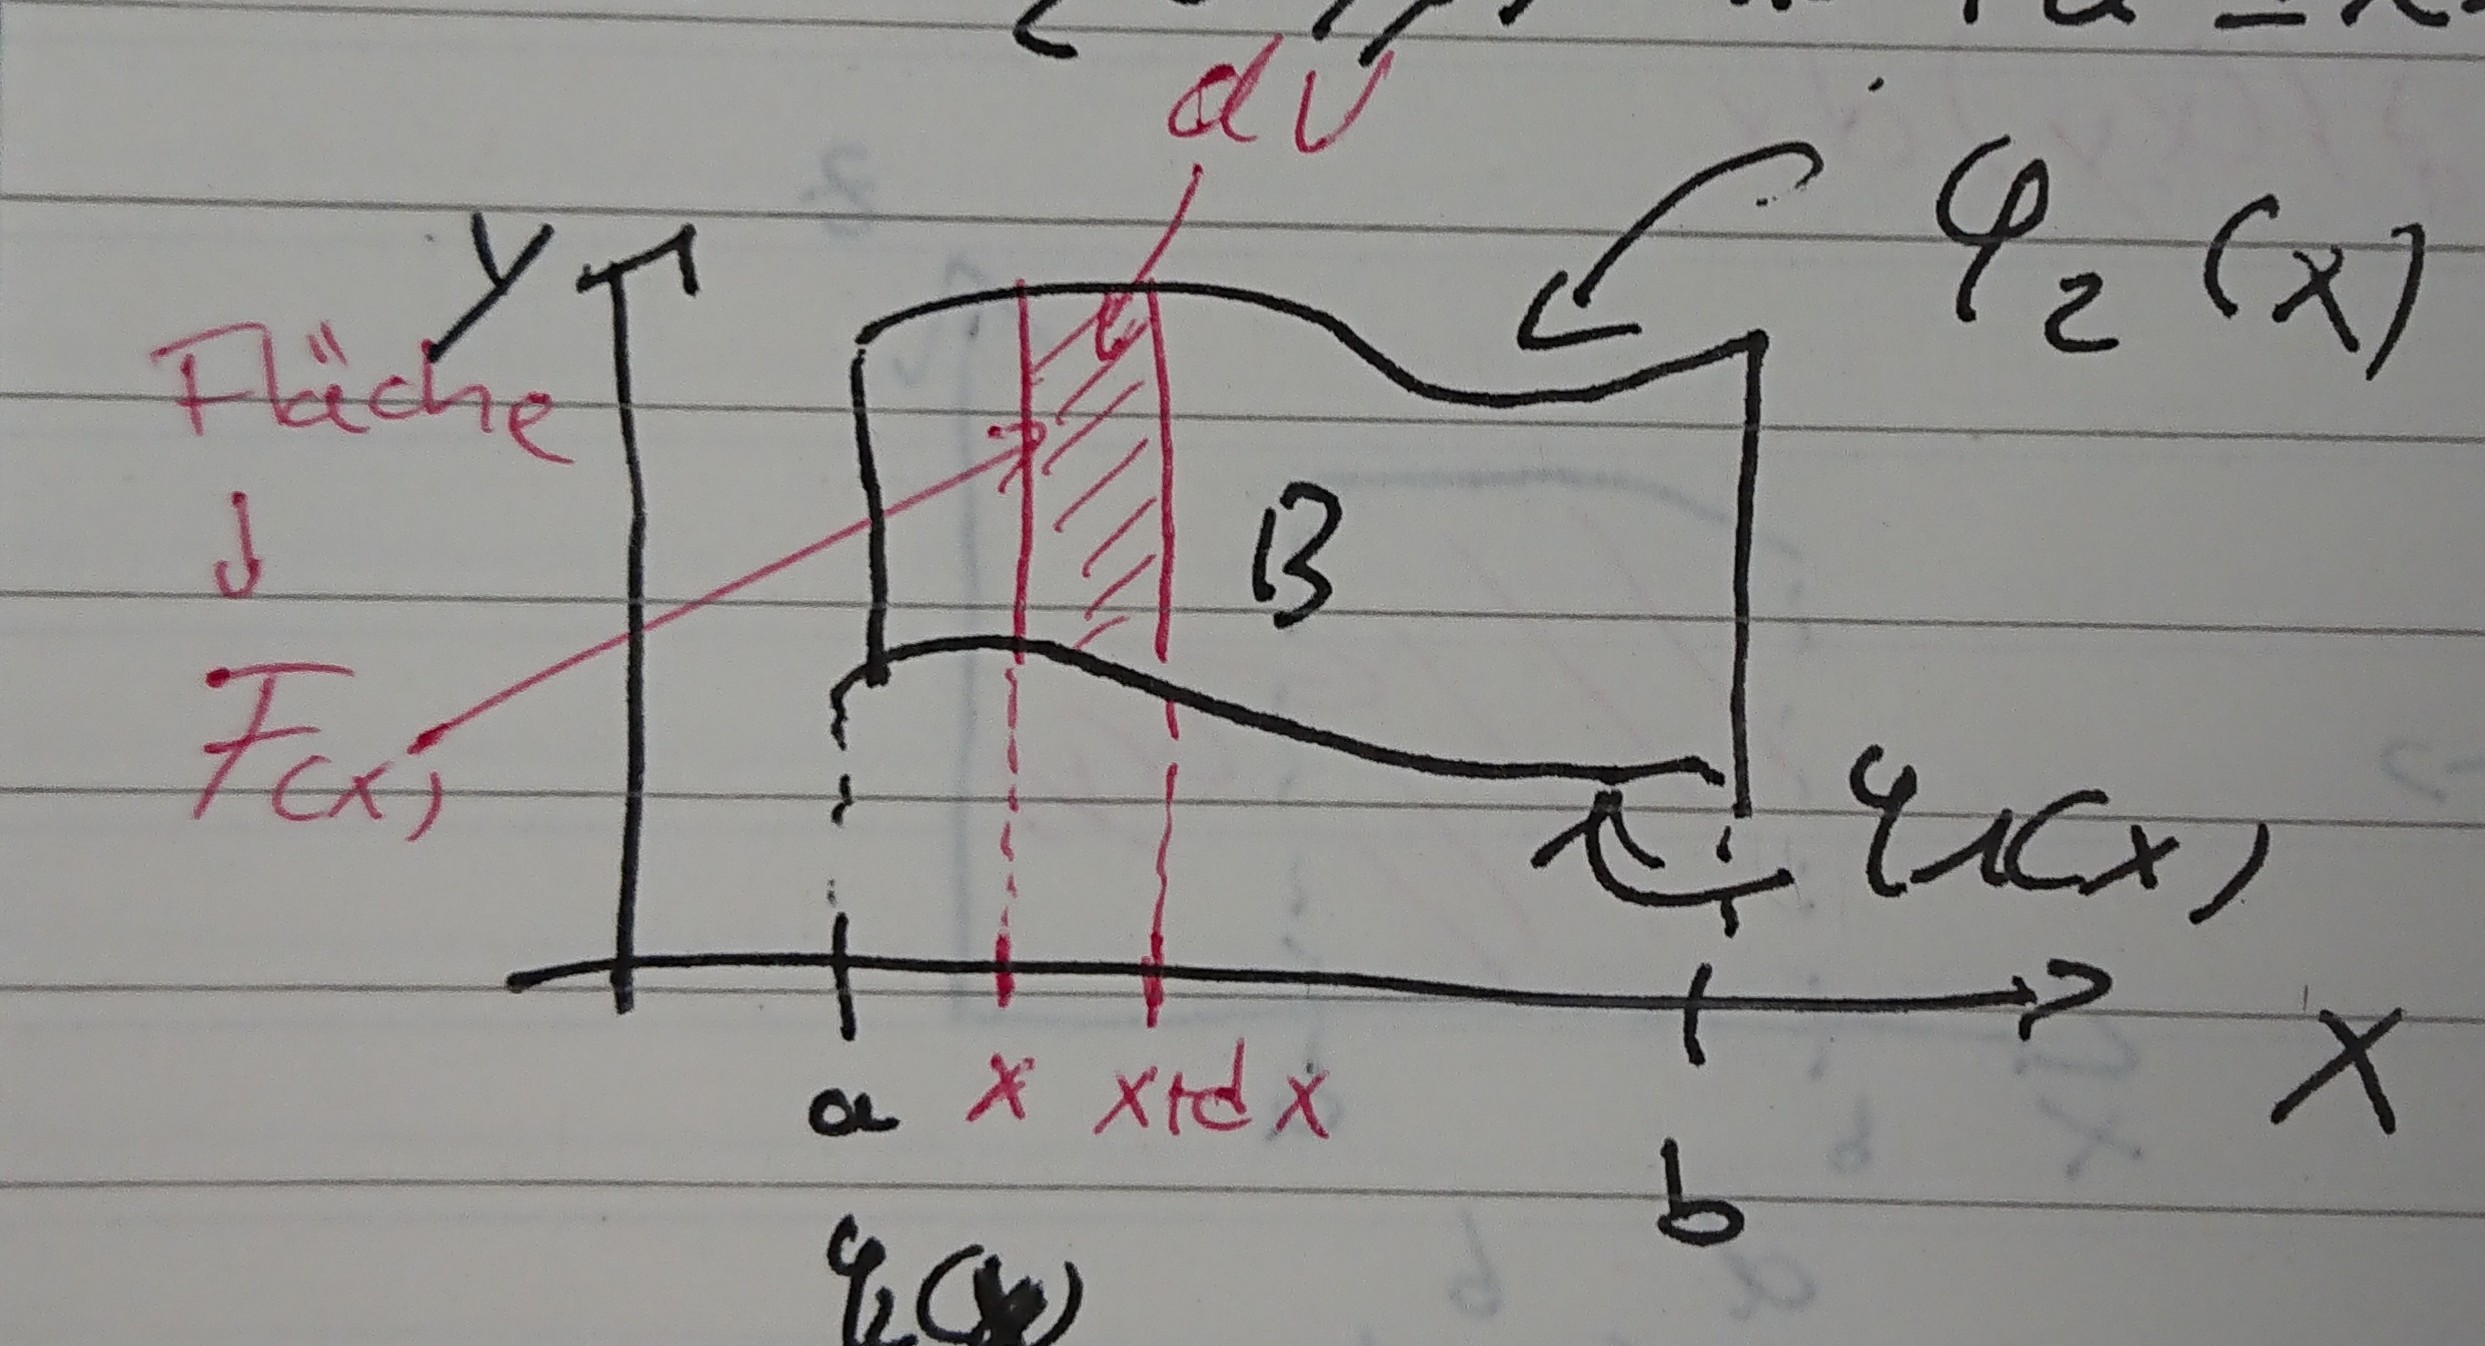 dV
φ₂(x)
y
Fläche
↓
F(x)
B
φ₁(x)
a x x+dx
b
x
φ₂(x)